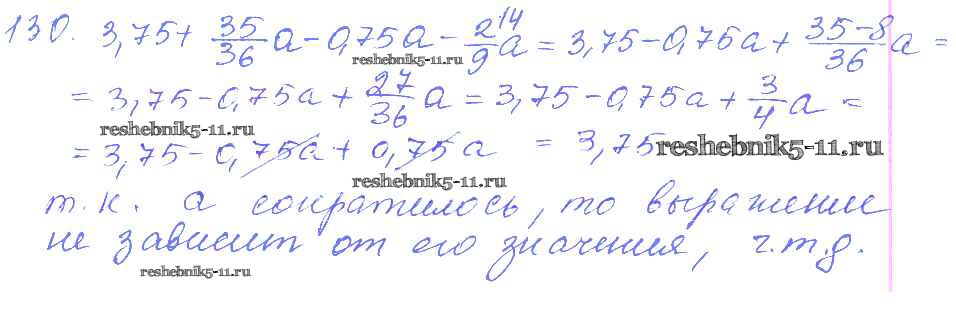 130. 3,75 + 35/36 a - 0,75a - 2\4/9 a = 3,75 - 0,75a + 35-8/36 a =
reshebnik5-11.ru
= 3,75 - 0,75a + 27/36 a = 3,75 - 0,75a + 3/4 a =
reshebnik5-11.ru
= 3,75 - 0,75a + 0,75a = 3,75 reshebnik5-11.ru
reshebnik5-11.ru
т.к. а сократилось, то выражение
не зависит от его значения, ч.т.д.
reshebnik5-11.ru